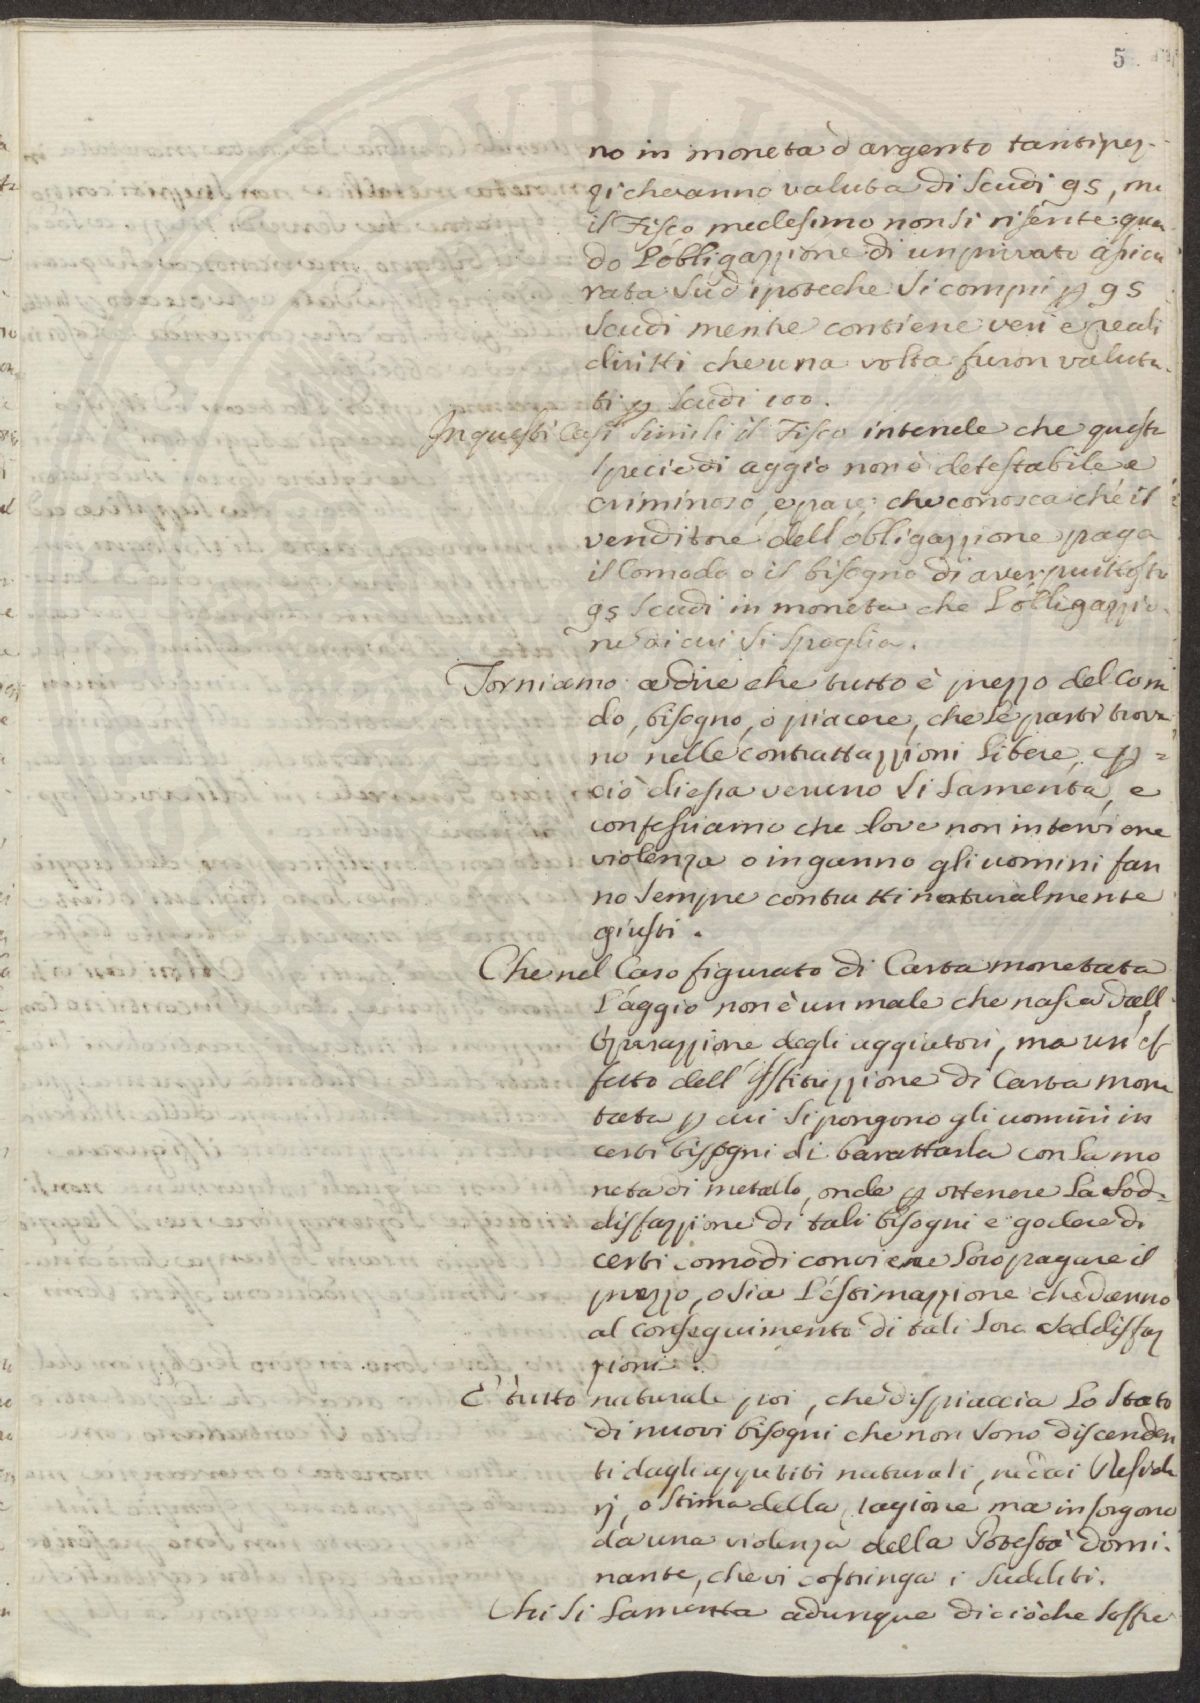 5
no in moneta d argento tantipez-
zi cheanno valuta di Scudi 95, ne
il Fisco medesimo non si risente: quan
do L'obbligazzione di un privato asicu
rata Sud ipoteche Si compri p 95
Scudi mentre contiene veri e reali
diritti che una volta furon valuta-
ti p Scudi 100.
In questi Casi Simili il Fisco intende che questa
Specie di aggio non è detestabile e
criminoso, e pare che conosca che il
venditore dell'obligazzione paga
il Comodo o il bisogno di aver piuttosto
95 Scudi in moneta che L'obligazzio-
ne di cui Si Spoglia.
Torniamo a dire che tutto è prezzo del Com
do, bisogno, o piacere, che le parti trova
no nelle contrattazzioni Libere, e p =
ciò diessa veruno Si Lamenta, e
confessiamo che dove non interviene
violenza o inganno gli uomini fan
no Sempre contratti naturalmente
giusti.
Che nel Caso figurato di Carta monetata
L'aggio non è un male che nasca dall
operazzione degli aggiatori, ma un ef
fetto dell'Istituzzione di Carta mone
tata p cui Si pongono gli uomini in
certi bisogni di barattarla con La mo
neta di metallo, onde p ottenere La Sod-
disfazzione di tali bisogni e godere di
certi comodi conviene Loro pagare il
prezzo, o Sia L'estimazzione che danno
al conseguimento di tali Loro Soddisfaz
zioni.
È tutto naturale poi, che dispiaccia Lo Stato
di nuovi bisogni che non Sono discenden
ti dagli appetiti naturali, ne dai Desider
rj, o Stima della ragione ma insorgono
da una violenza della Potestà domi-
nante, che vi costringa i Sudditi.
Chi Si Lamenta adunque di ciò che Soffre